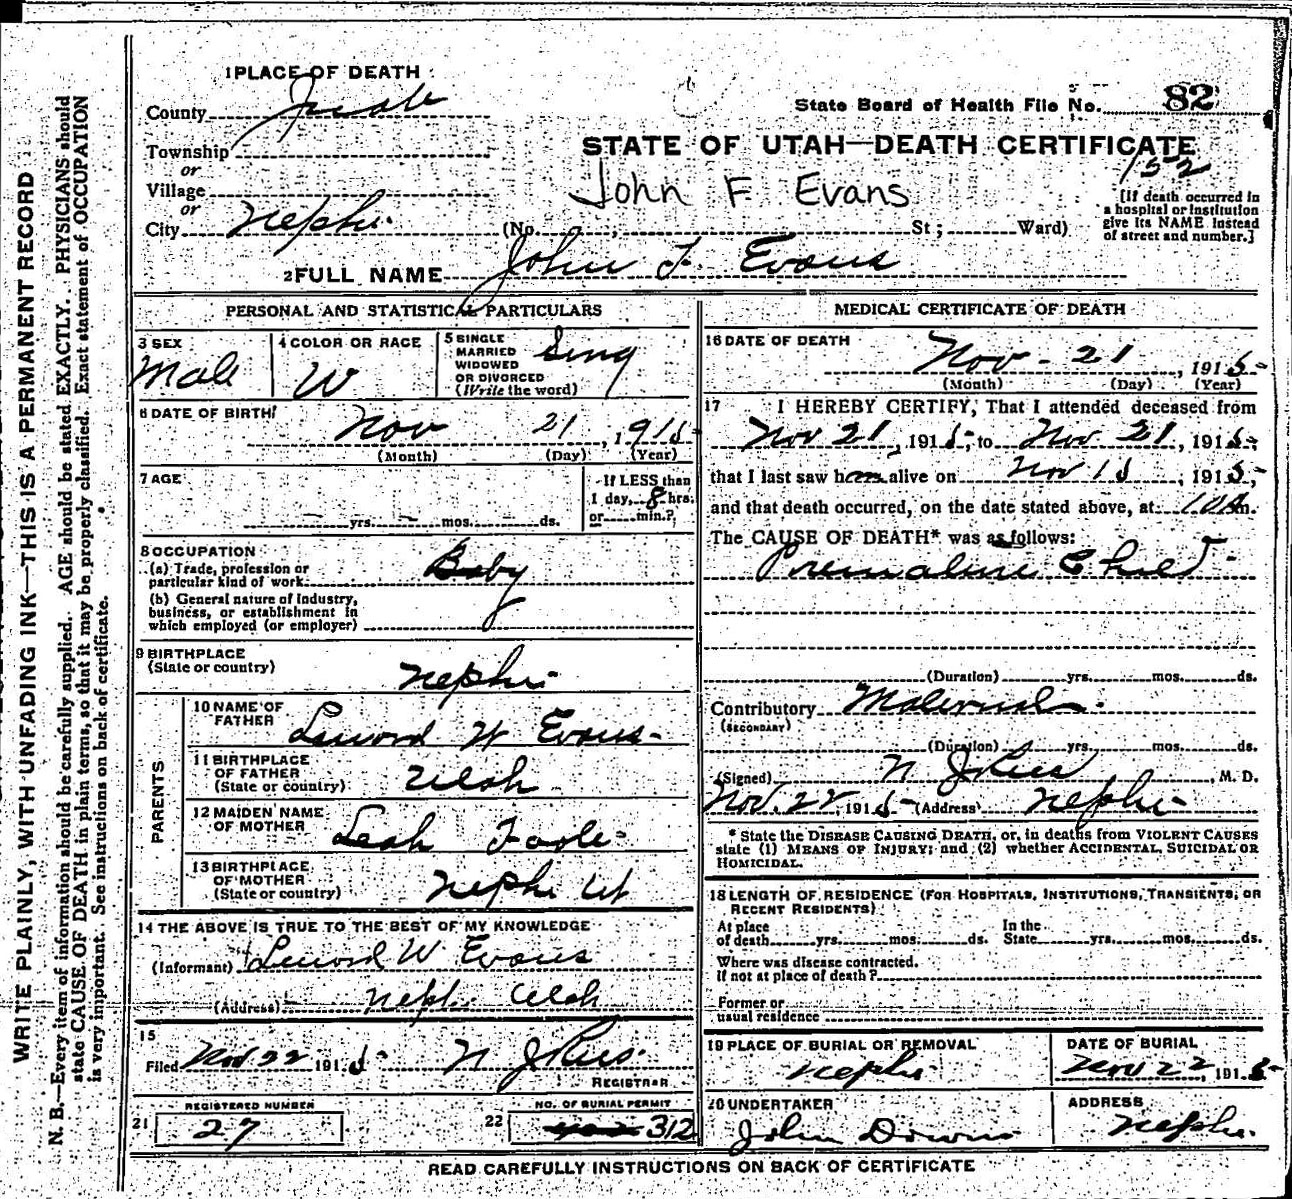 WRITE PLAINLY, WITH UNFADING INK—THIS IS A PERMANENT RECORD
N. B.—Every item of information should be carefully supplied. AGE should be stated EXACTLY. PHYSICIANS should
state CAUSE OF DEATH in plain terms, so that it may be properly classified. Exact statement of OCCUPATION
is very important. See instructions on back of certificate.
1 PLACE OF DEATH
County Juab
Township
or
Village
or
City Nephi
State Board of Health File No. 82
STATE OF UTAH—DEATH CERTIFICATE
152
John F Evans
(No. St; Ward)
[If death occurred in
a hospital or institution
give its NAME instead
of street and number.]
2 FULL NAME John F. Evans
PERSONAL AND STATISTICAL PARTICULARS
3 SEX Male
4 COLOR OR RACE W
5 SINGLE
MARRIED
WIDOWED
OR DIVORCED
(Write the word)
Sing
6 DATE OF BIRTH
Nov 21, 1915
(Month) (Day) (Year)
7 AGE
yrs. mos. ds.
If LESS than
1 day, 8 hrs.
or min.?
8 OCCUPATION
(a) Trade, profession or
particular kind of work Baby
(b) General nature of industry,
business, or establishment in
which employed (or employer)
9 BIRTHPLACE
(State or country) Nephi
PARENTS
10 NAME OF
FATHER W Evans
11 BIRTHPLACE
OF FATHER
(State or country) Utah
12 MAIDEN NAME
OF MOTHER Leah
13 BIRTHPLACE
OF MOTHER
(State or country) Nephi Ut
14 THE ABOVE IS TRUE TO THE BEST OF MY KNOWLEDGE
(Informant) W Evans
(Address) Neph. Utah
15
Filed Nov 22 1915 N J Rees
REGISTRAR
REGISTERED NUMBER
21 27
NO. OF BURIAL PERMIT
22 312
MEDICAL CERTIFICATE OF DEATH
16 DATE OF DEATH
Nov - 21, 1915
(Month) (Day) (Year)
17 I HEREBY CERTIFY, That I attended deceased from
Nov 21, 1915, to Nov. 21, 1915,
that I last saw h alive on Nov, 1915,
and that death occurred, on the date stated above, at 10 A m.
The CAUSE OF DEATH* was as follows:
Premature Child
(Duration) yrs. mos. ds.
Contributory Maternal
(SECONDARY)
(Duration) yrs. mos. ds.
(Signed) N J Rees, M. D.
Nov. 22, 1915 (Address) Nephi
* State the DISEASE CAUSING DEATH, or, in deaths from VIOLENT CAUSES
state (1) MEANS OF INJURY; and (2) whether ACCIDENTAL, SUICIDAL OR
HOMICIDAL.
18 LENGTH OF RESIDENCE (FOR HOSPITALS, INSTITUTIONS, TRANSIENTS, OR
RECENT RESIDENTS)
At place
of death yrs. mos. ds.
In the
State yrs. mos. ds.
Where was disease contracted,
if not at place of death?
Former or
usual residence
19 PLACE OF BURIAL OR REMOVAL
Nephi
DATE OF BURIAL
Nov 22, 1915
20 UNDERTAKER
John
ADDRESS
Nephi.
READ CAREFULLY INSTRUCTIONS ON BACK OF CERTIFICATE